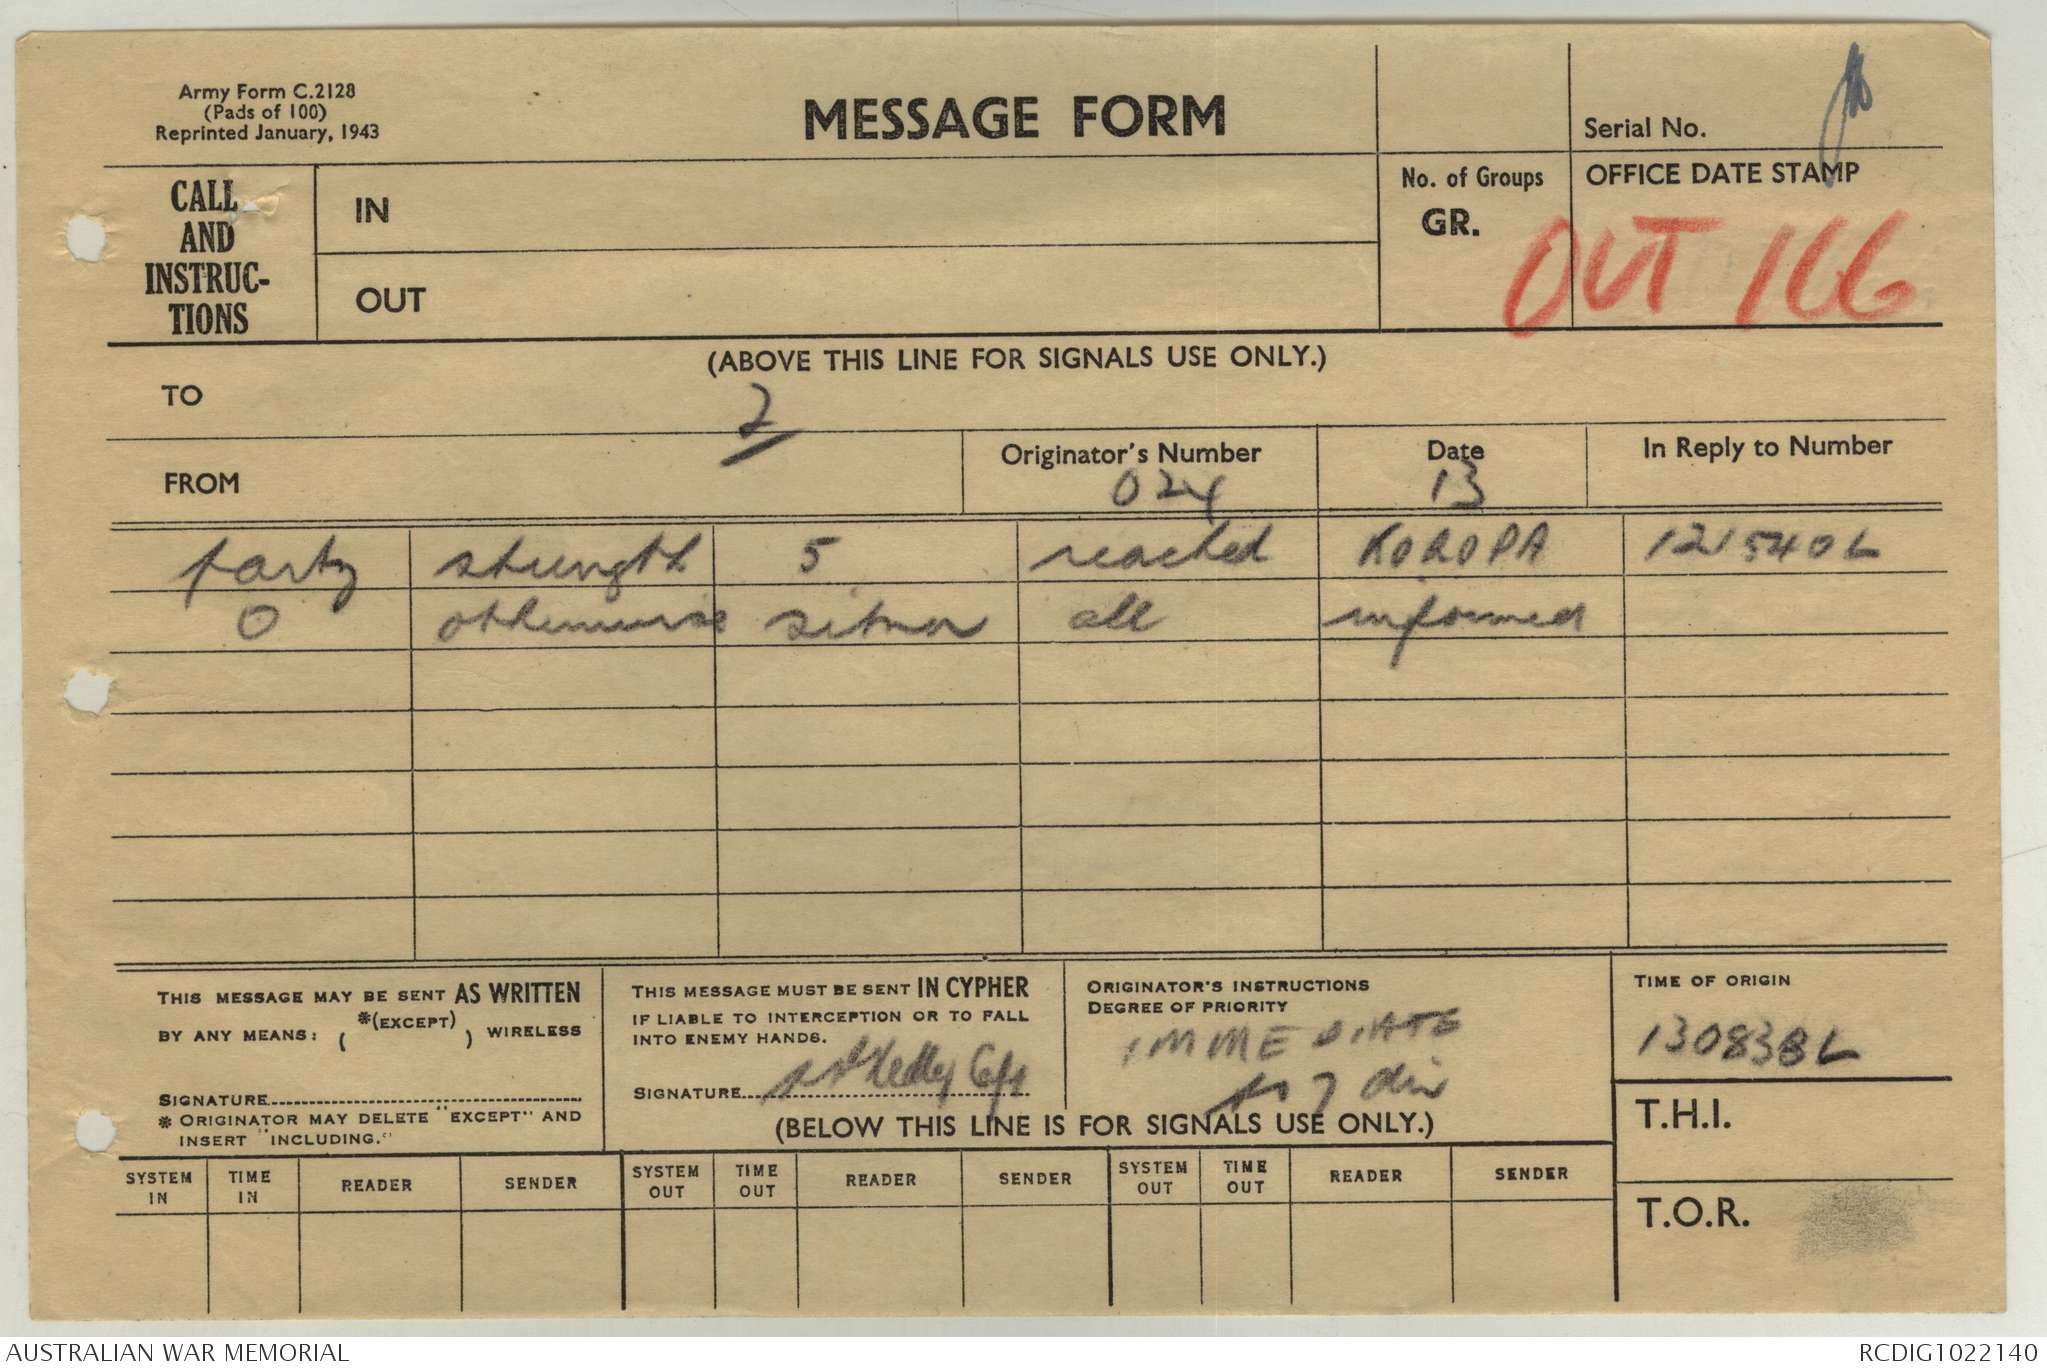 Army Form C.2128
(Pads of 100)
Reprinted January, 1943
MESSAGE FORM
Serial No.
CALL AND INSTRUC-TIONS
IN
OUT
No. of Groups
GR.
OFFICE DATE STAMP
OUT 166
(ABOVE THIS LINE FOR SIGNALS USE ONLY.)
TO
2
FROM
Originator's Number
024
Date
13
In Reply to Number
party strength 5 reached KOROPA 121540L
O otherwise all informed
THIS MESSAGE MAY BE SENT AS WRITTEN
BY ANY MEANS: ( *(EXCEPT) ) WIRELESS
SIGNATURE
* ORIGINATOR MAY DELETE "EXCEPT" AND
INSERT "INCLUDING."
THIS MESSAGE MUST BE SENT IN CYPHER
IF LIABLE TO INTERCEPTION OR TO FALL
INTO ENEMY HANDS.
SIGNATURE Kelly
ORIGINATOR'S INSTRUCTIONS
DEGREE OF PRIORITY
IMMEDIATE
to 7 div
TIME OF ORIGIN
130838L
(BELOW THIS LINE IS FOR SIGNALS USE ONLY.)
T.H.I.
T.O.R.
SYSTEM IN TIME IN READER SENDER SYSTEM OUT TIME OUT READER SENDER SYSTEM OUT TIME OUT READER SENDER
AUSTRALIAN WAR MEMORIAL
RCDIG1022140